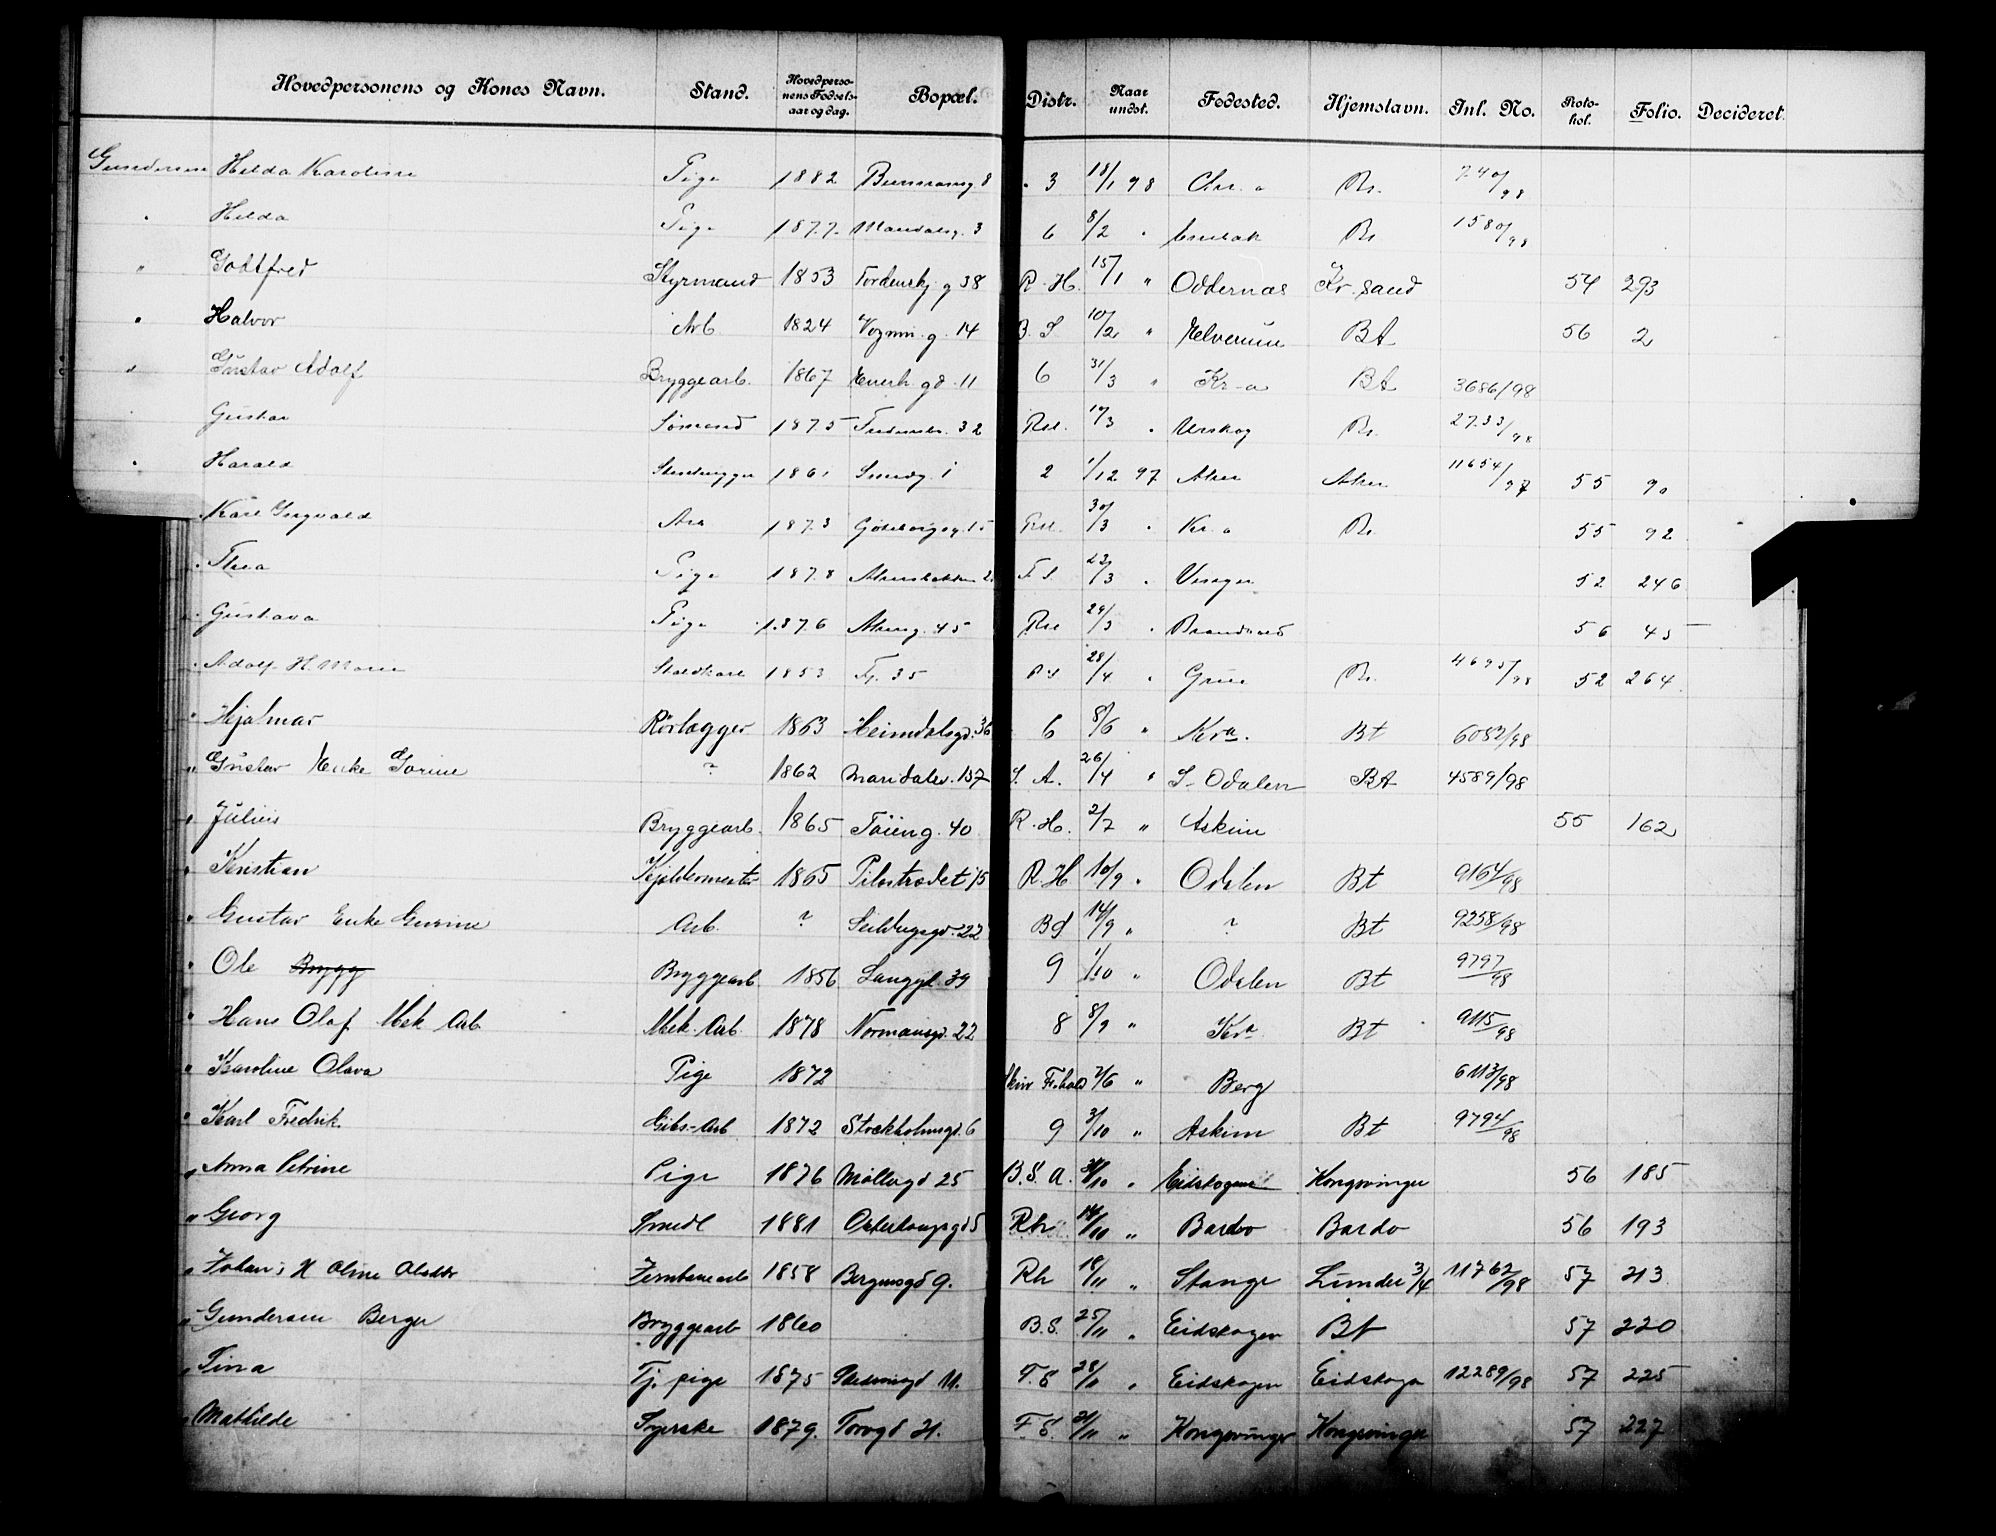 Hovedpersonens og Kones Navn. Stand. Hovedpersonens Fødselsaar og dag. Bopæl. Distr. Naar undst. Fødested. Hjemstavn. Inl. No. Protokol. Folio. Decideret.
Gundersen Hilda Karoline Pige 1882 8 3 18/1 98 Chr.a Bt. 740/98
" Hilda Pige 1877 Mandalsg. 3 6 8/2 " Bt 1580/98
" Godtfred Styrmand 1853 Tordenskj. g 38 R.H. 15/1 " Oddernæs Kr. sand 54 293
" Halvor Arb 1824 Vognm. g. 14 B.S 10/2 " Elverum Bt 56 2
" Gustav Adolf Bryggearb. 1867 Enerh. gd. 11 6 31/3 " Kr-a Bt 3686/98
Gustav Sømand 1875 32 Rst. 10/3 " Urskog Bt. 2733/98
" Harald Stenhugger 1861 Smedg. 1 2 1/12 97 Aker Aker 11654/97 55 90
Karl Sigvald Arb 1873 Gøteborgsg. 15 Rst. 30/3 " Kr. a Bt. 55 92
" Thea Pige 1878 Akersbakken F.S. 23/3 " 52 246
" Gustava Pige 1876 Akersg. 45 Rst 29/3 " Brandvold 56 45
" Adolf H. Marie Staldkarl 1853 35 28/4 " Grue Bt. 4695/98 52 264
" Hjalmar Rørlægger 1863 Heimdalsgd. 36 6 8/6 " Kra. Bt 6082/98
" Gustav Enke Gorine ? 1862 Maridalsv. 157 S.A. 26/4 " S. Odalen Bt 4589/98
" Julius Bryggearb. 1865 Tøieng. 40 R.H. 2/7 " Askim 55 162
" Kristian Kjeldermester 1865 Pilestrædet 15 R.H 10/9 " Odalen Bt 9164/98
" Gustav Enke Gurine Arb. ? Seildugsgd. 22 BS 14/9 " ? Bt 9258/98
" Ole Brygg Bryggearb. 1856 Langgt. 39 9 1/10 " Odalen Bt 9797/98
" Hans Olaf Mek Arb. Mek. Arb. 1878 Normansgd. 22 8 8/9 " Kra Bt 9115/98
" Karoline Olava Pige 1872 7/6 " Berg 6113/98
" Karl Fredrik Gibs-Arb 1872 Stockholmsgd. 6 9 3/10 " Askim Bt 9794/98
" Anna Petrine Pige 1876 Møllergd 25 B.S.A. /10 " Eidskogen Kongsvinger 56 185
" Georg Smedl 1881 Osterhausgd 5 Rh 14/10 " Bardo Bardo 56 193
" Johan; H Oline Olsdtr Jernbanearb 1858 Bergensgd 9. Rh 18/11 " Stange Lunder 3/4 11762/98 57 213
" Gundersen Berger Bryggearb 1860 B.S. 25/11 " Eidskogen Bt 57 220
" Tina Tj. pige 1875 11. F.S 28/11 " Eidskogen Eidskoge 12289/98 57 225
" Mathilde Syerske 1879. Torvgd 21. F.S. 21/11 " Kongsvinger Kongsvinger 57 227